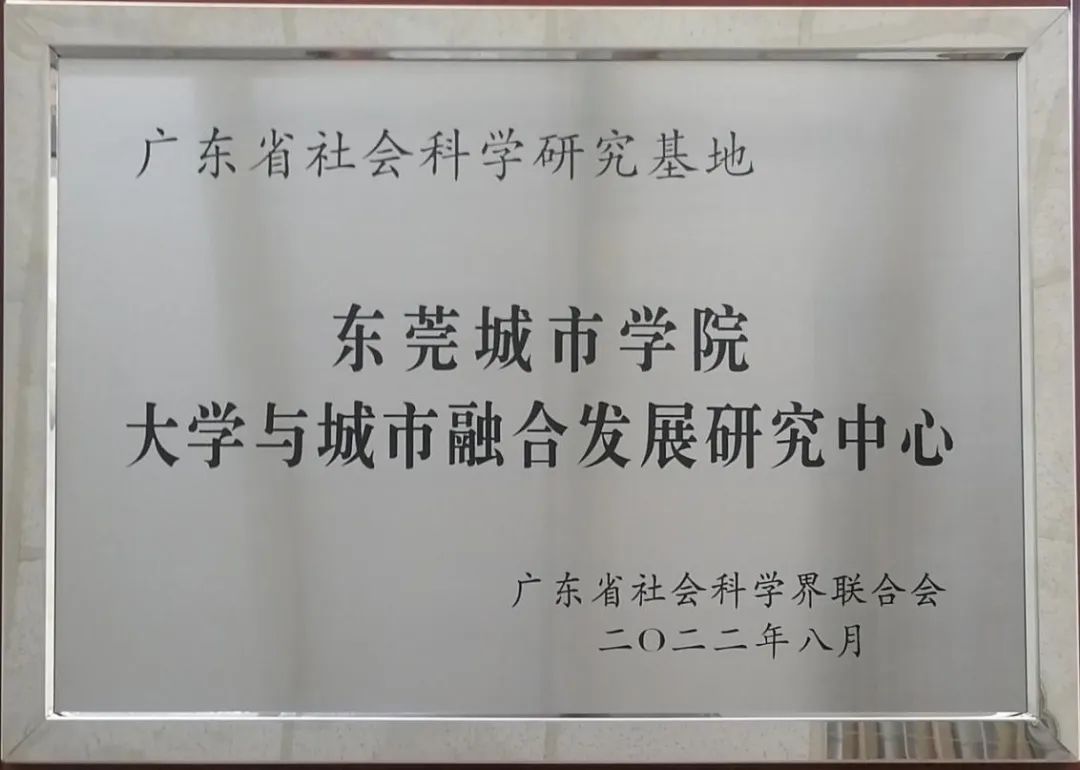 广东省社会科学研究基地
东莞城市学院
大学与城市融合发展研究中心
广东省社会科学界联合会
二〇二二年八月